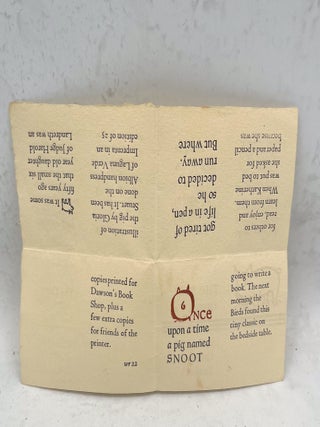 ONCE
6
upon a time
a pig named
SNOOT
got tired of
life in a pen,
so he
decided to
run away.
But where
It was some
fifty years ago
that the small six
year old daughter
of Judge Harold
Landreth was an
for others to
read, enjoy and
learn from them.
When Katherine
was put to bed
she asked for
paper and a pencil
because she was
going to write a
book. The next
morning the
Birds found this
tiny classic on
the bedside table.
illustration of
the pig by Gloria
Stuart. It has been
done on the
Albion handpress
of Laguna Verde
Imprenta in an
edition of 25
copiesprinted for
Dawson's Book
Shop, plus a
few extra copies
for friends of the
printer.